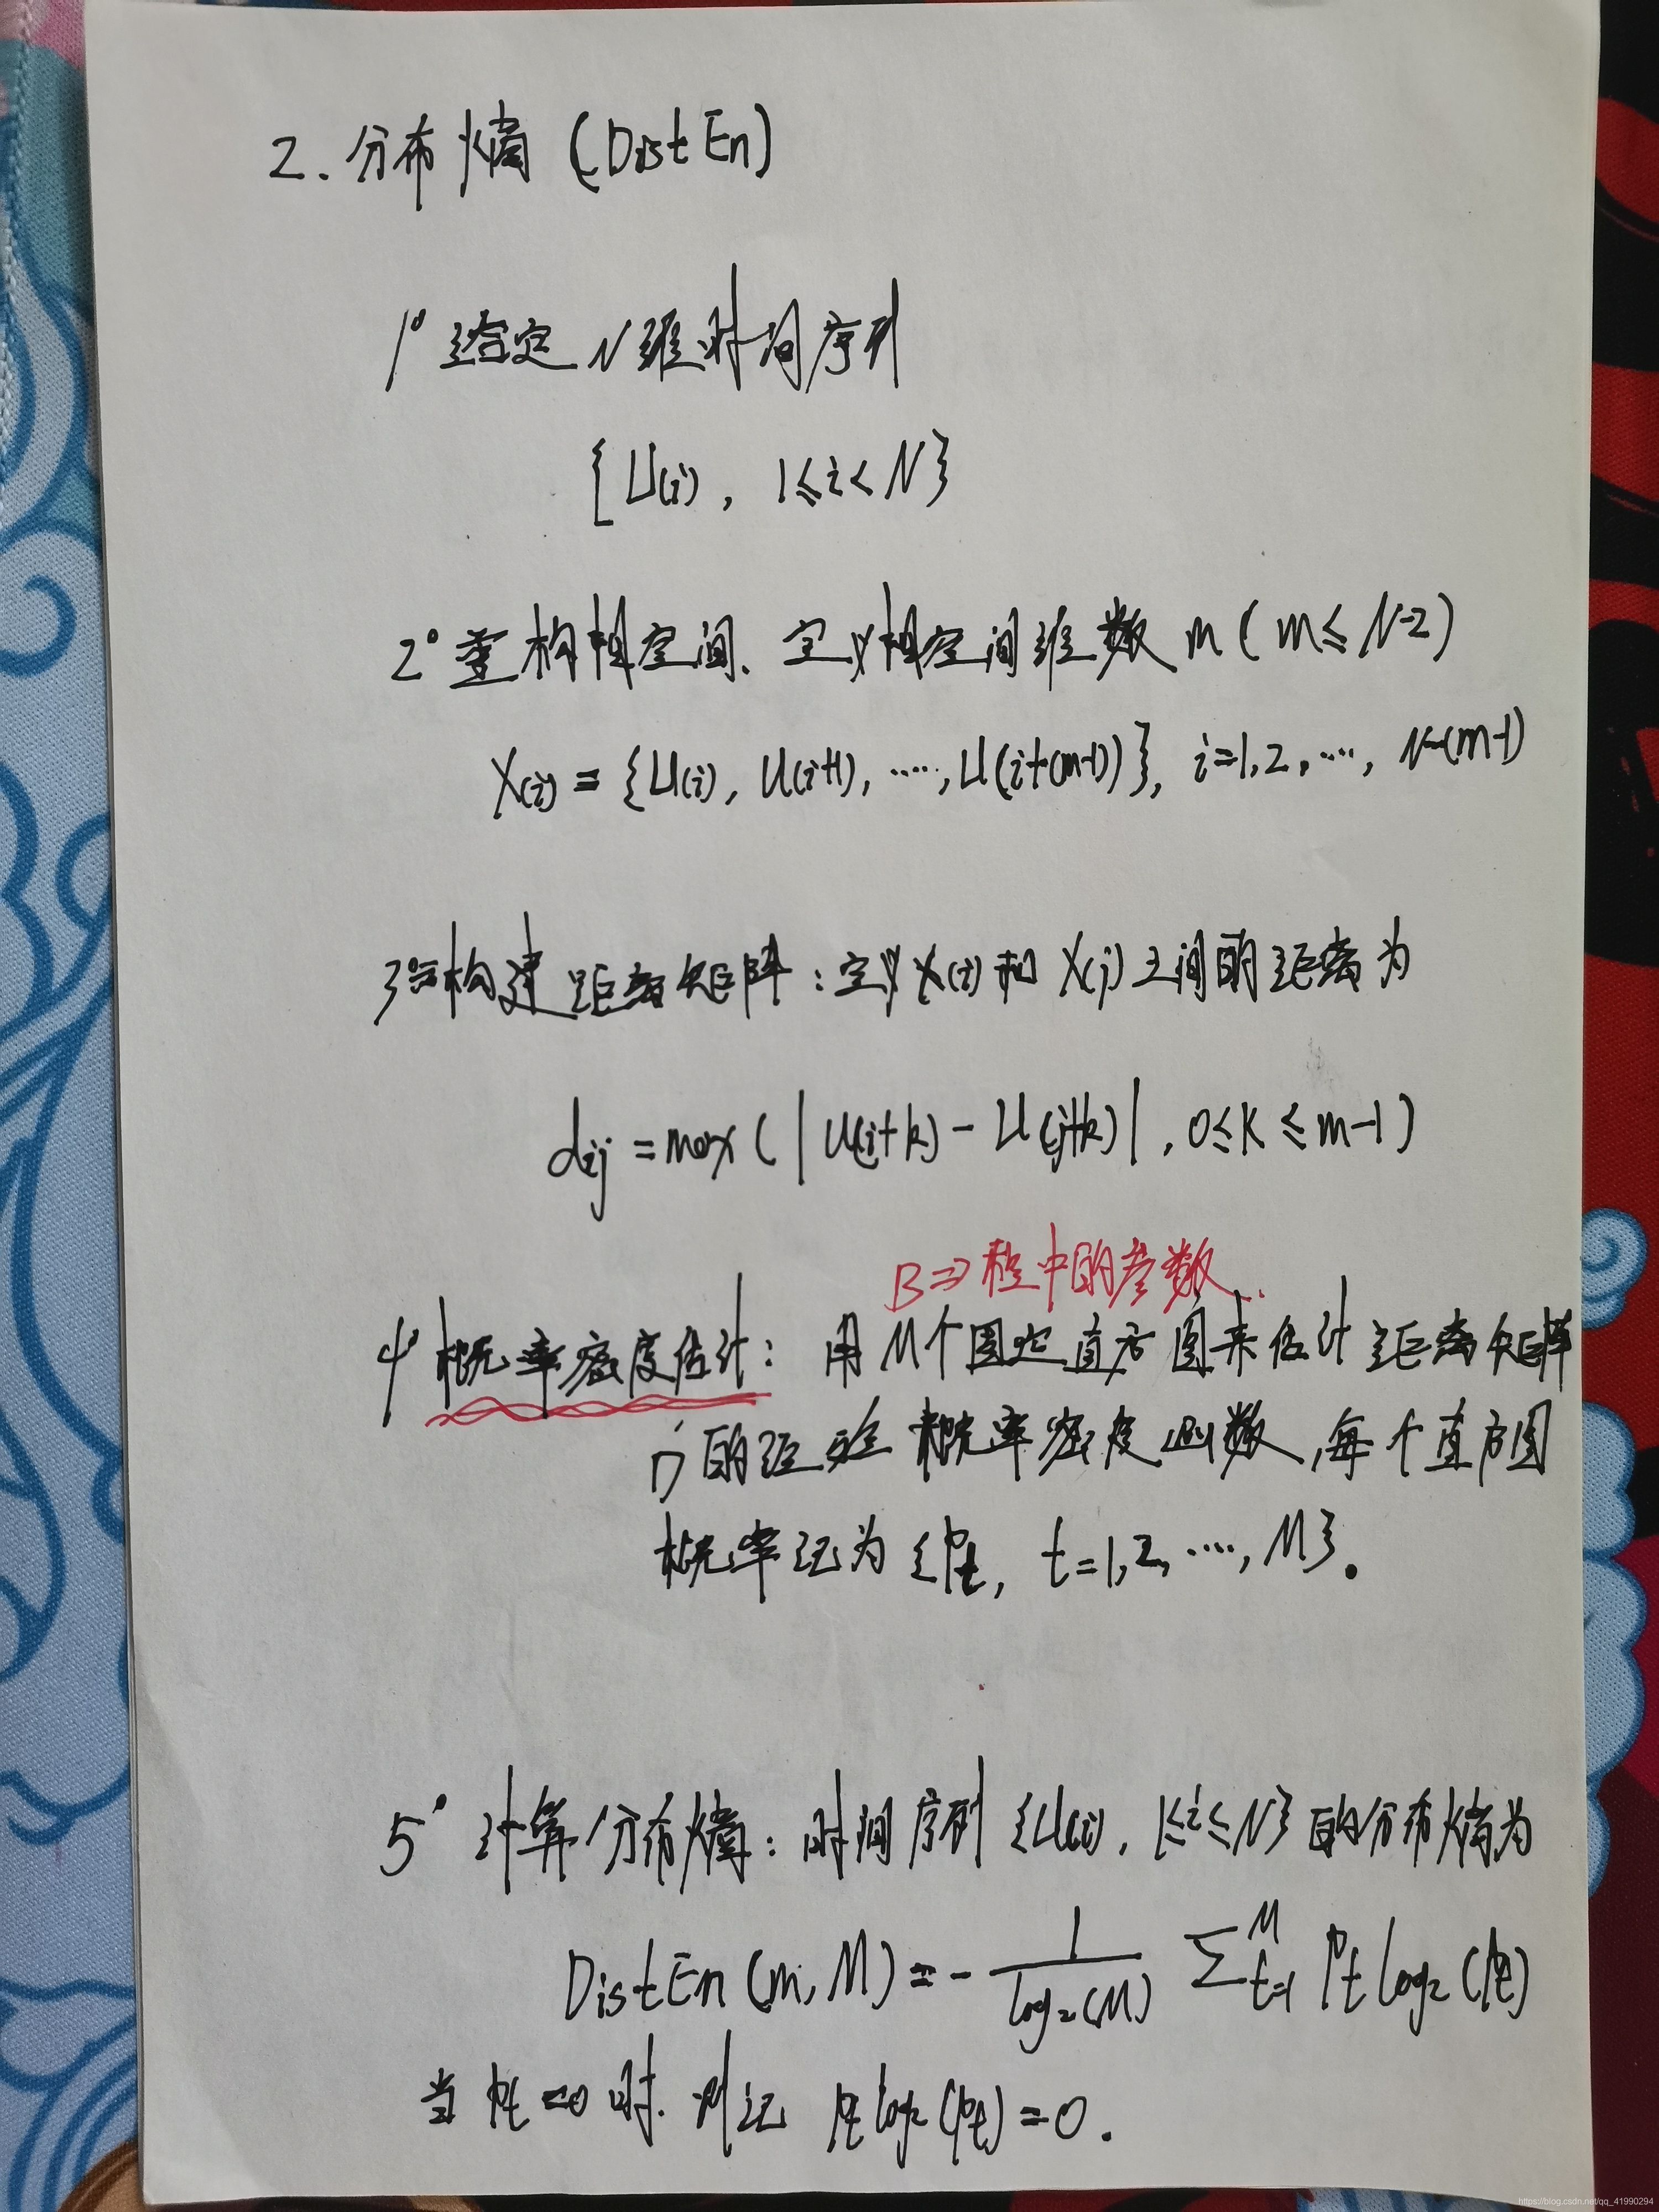 2. 分布熵 (DistEn)
1° 给定 N维时间序列
{U(i), 1≤i<N}
2° 重构相空间. 定义相空间维数 m (m≤N-2)
X(i) = {U(i), U(i+1), ……, U(i+(m-1))}, i=1,2,…, N-(m-1)
3° 构建距离矩阵:定义X(i)和X(j)之间的距离为
dij = max(|U(i+k) - U(j+k)|, 0≤k≤m-1)
B⇒ 程中的参数.
4° 概率密度估计: 用M个固定直方图来估计距离矩阵
D的经验概率密度函数,每个直方图
概率记为{Pt, t=1,2,…,M}.
5° 计算分布熵:时间序列{U(i), 1≤i≤N}的分布熵为
DistEn(m,M) = - 1/log₂(M) ∑ᴹt=1 Pt log₂(Pt)
当Pt=0时.则记 Pt log₂(Pt)=0.
https://blog.csdn.net/qq_41990294